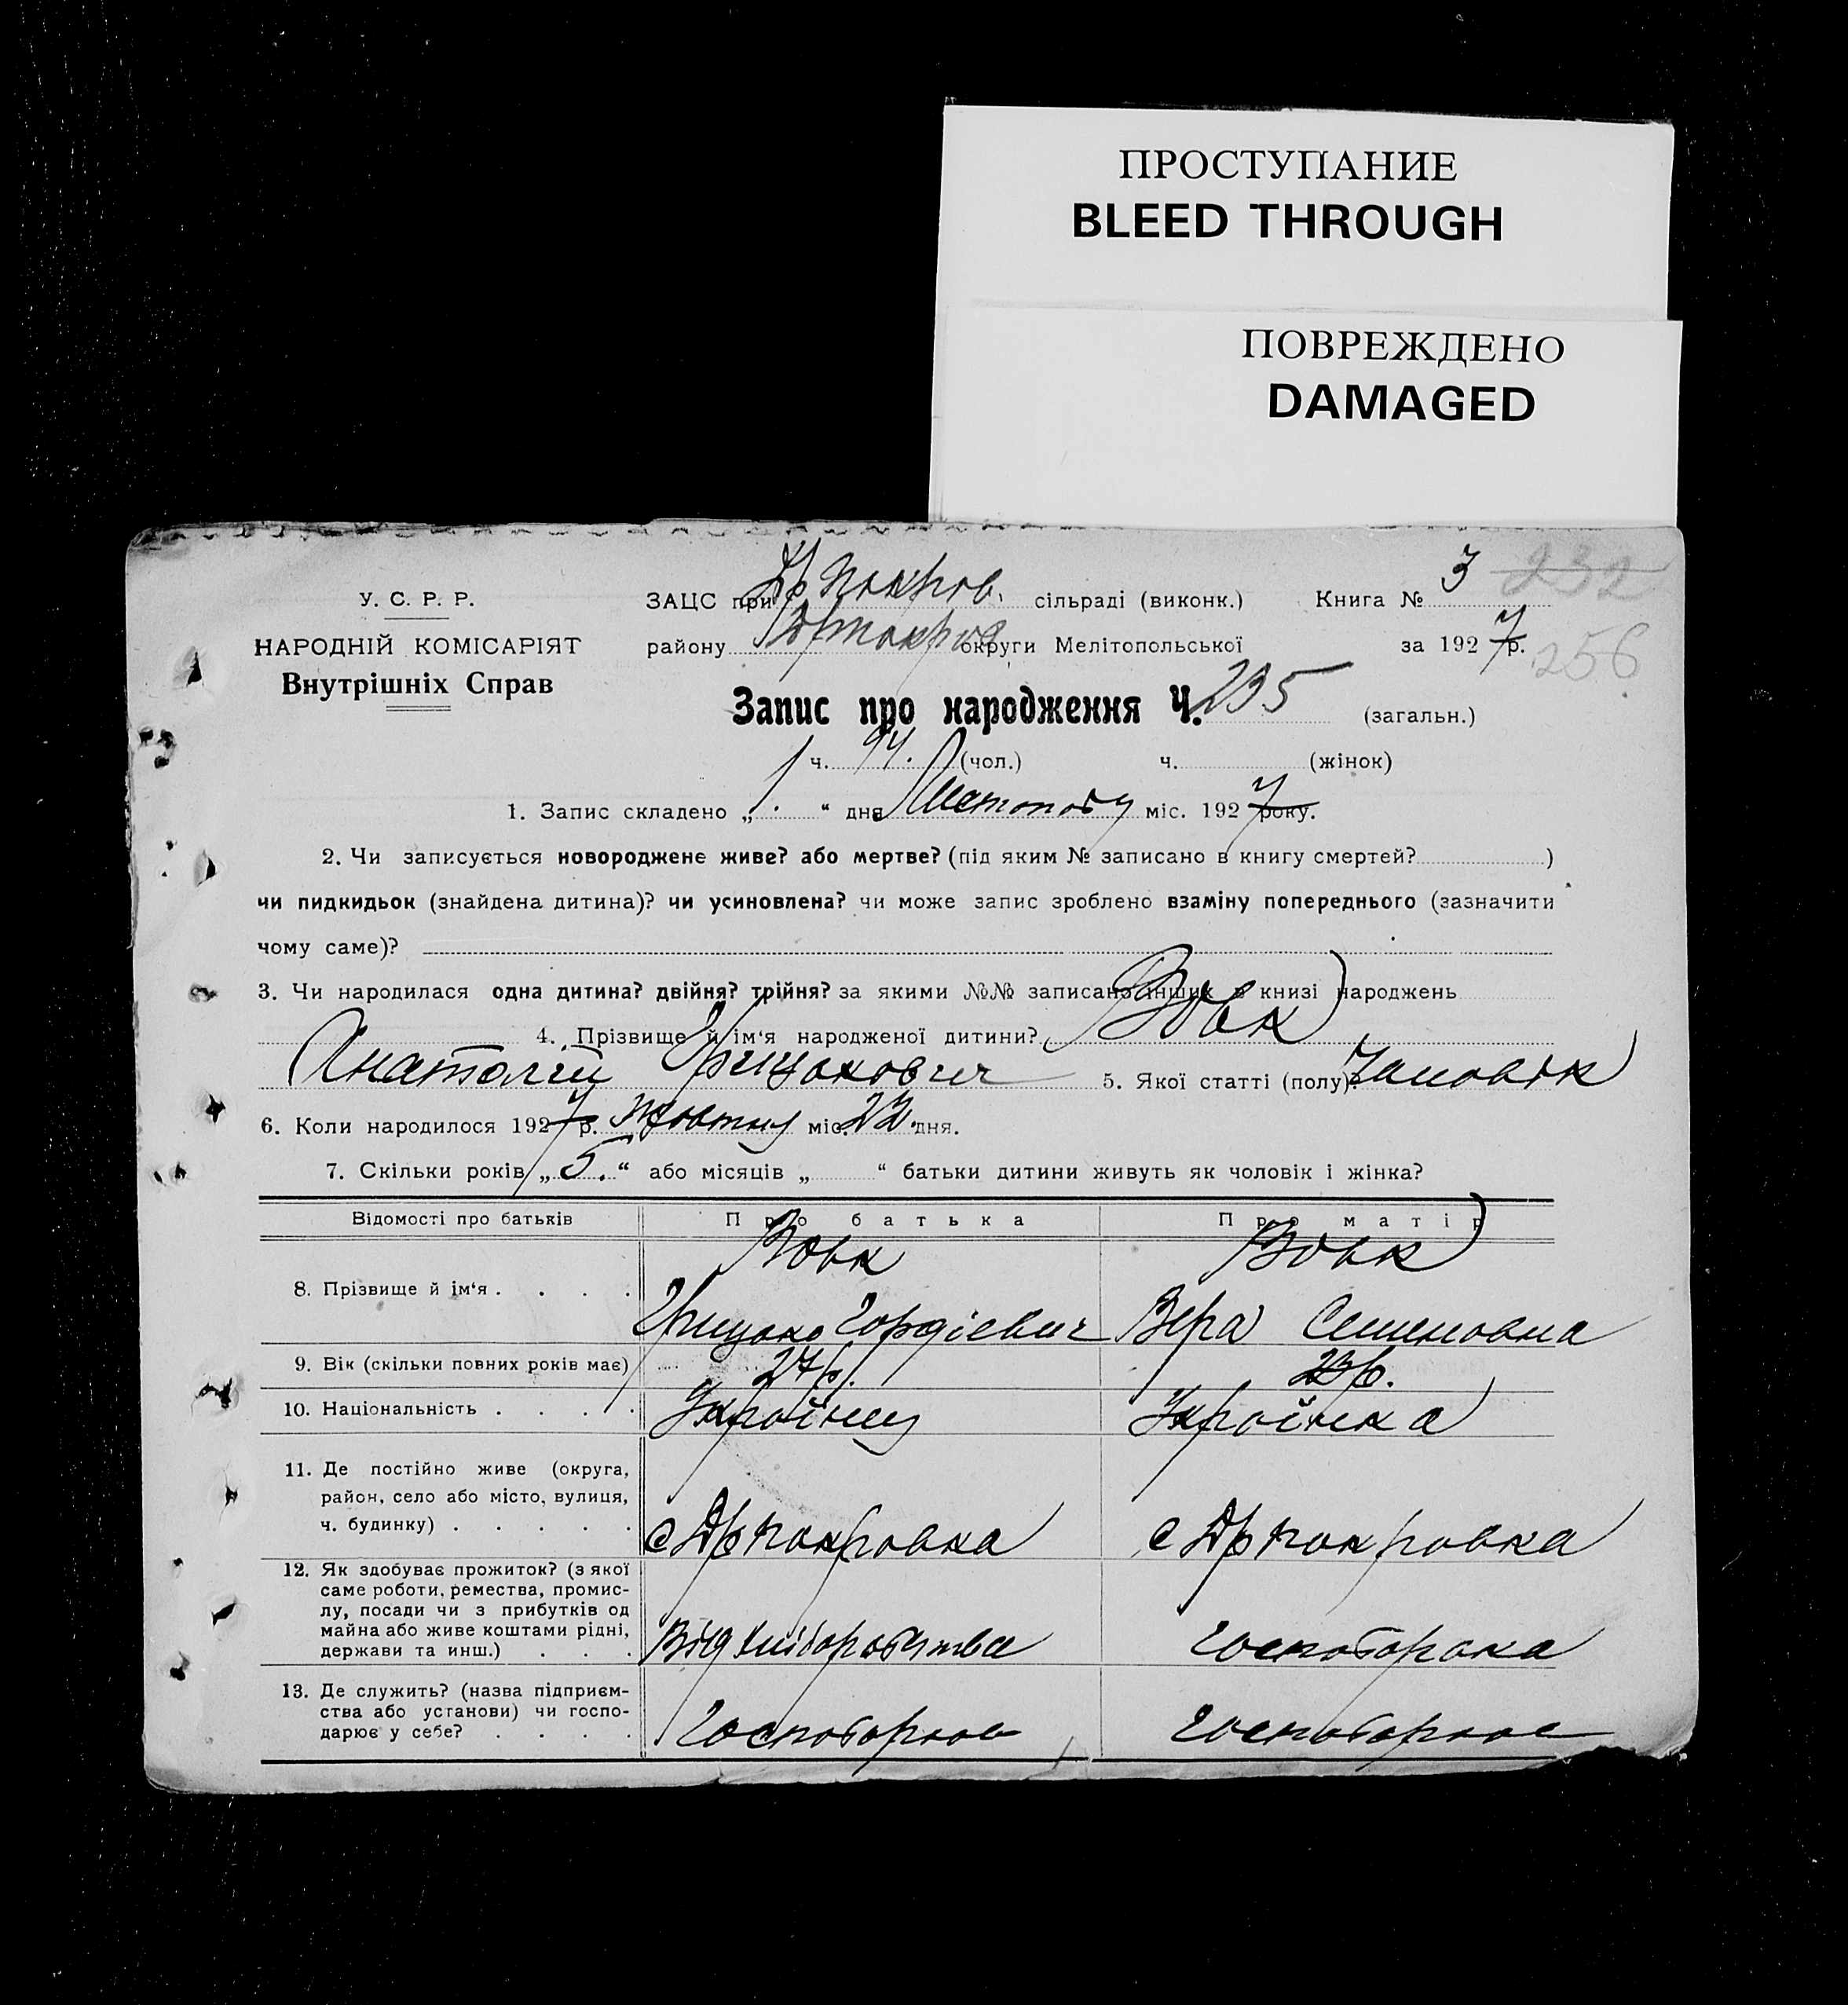 ПРОСТУПАНИЕ
BLEED THROUGH
ПОВРЕЖДЕНО
DAMAGED
У. С. Р. Р.
НАРОДНІЙ КОМІСАРІЯТ
Внутрішніх Справ
ЗАЦС при Др Покров. сільраді (виконк.) Книга № 3 232
району округи Мелітопольської за 1927 р. 256
Запис про народження Ч. 235 (загальн.)
ч. 94. (чол.) ч. (жінок)
1. Запис складено „ 1. “ дня Листопаду міс. 1927 року.
2. Чи записується новороджене живе? або мертве? (під яким № записано в книгу смертей? )
чи пидкидьок (знайдена дитина)? чи усиновлена? чи може запис зроблено взаміну попереднього (зазначити
чому саме)?
3. Чи народилася одна дитина? двійня? трійня? за якими №№ записано інших в книзі народжень
4. Прізвище й ім‘я народженої дитини? Вовк
Анатолій Грицькович 5. Якої статті (полу)? Чаловік
6. Коли народилося 1927 р. Жовтну міс. 22. дня.
7. Скільки років „ 5. “ або місяців „ “ батьки дитини живуть як чоловік і жінка?
Відомості про батьків Про батька Про матір
8. Прізвище й ім‘я . . . . Вовк Вовк
Грицько Гордієвич Вера Семеновна
9. Вік (скільки повних років має) 27 р. 23 р.
10. Національність . . . . Україну Українка
11. Де постійно живе (округа,
район, село або місто, вулиця,
ч. будинку) . . . . . с Др Покровка с Др Покровка
12. Як здобуває прожиток? (з якої
саме роботи, ремества, промис-
лу, посади чи з прибутків од
майна або живе коштами рідні,
держави та инш.) . . . Від хліборобства господарка
13. Де служить? (назва підприєм-
ства або установи) чи госпо-
дарює у себе? . . . .